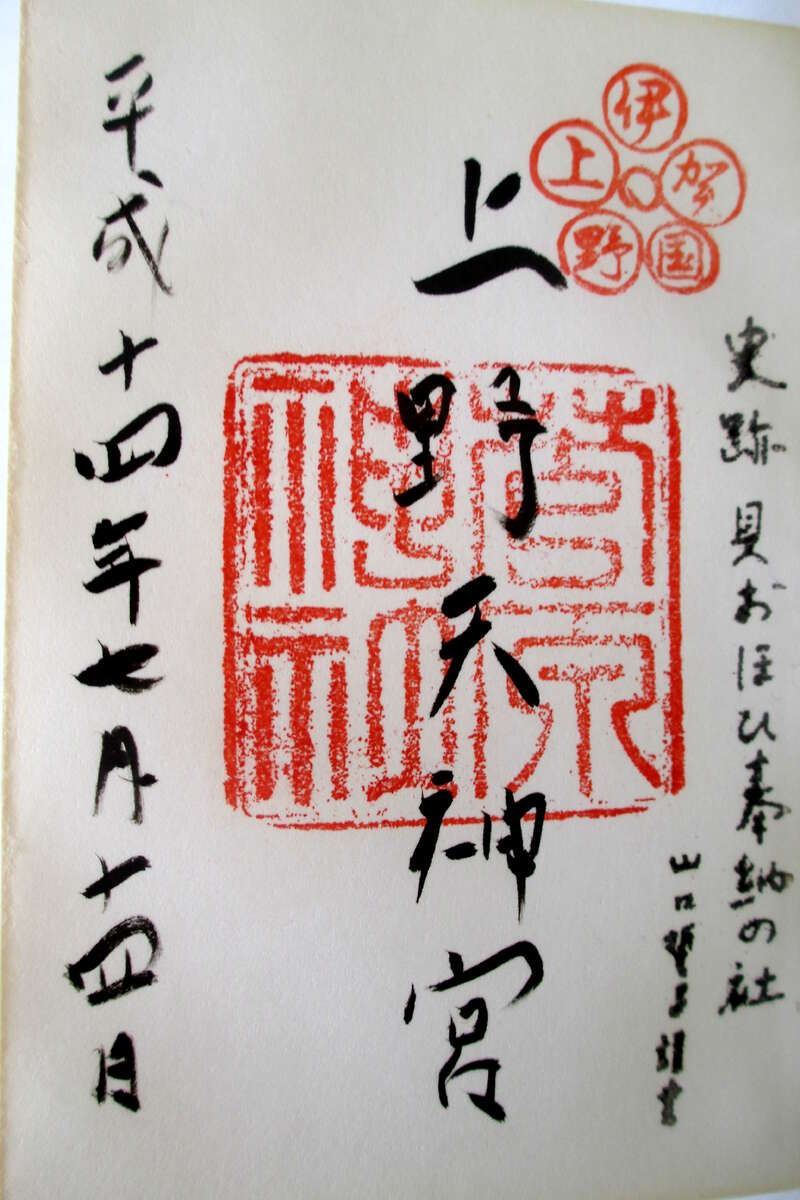 伊賀国
上野
史跡貝おほひ奉納の社
山口誓子
上野天神宮
菅原神社
平成十四年七月十四日